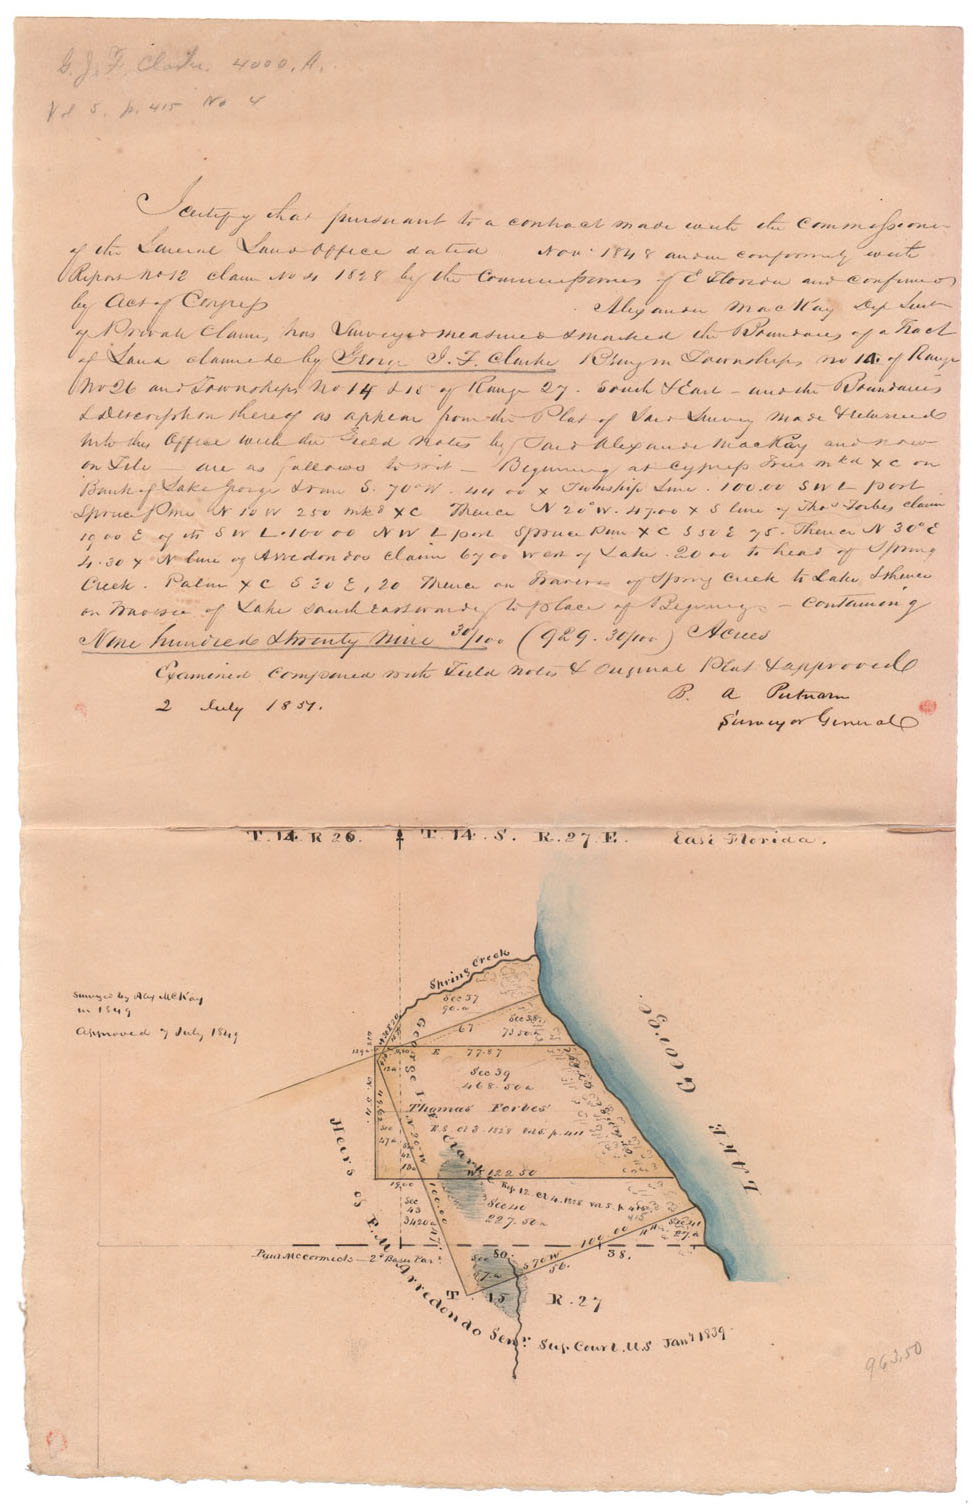 G. J. F. Clarke. 4000. A.
Vol 5. p. 415 No 4
I certify that pursuant to a contract made with the Commissioner
of the General Land Office dated Nov. 1848 and in conformity with
Report No 12 claim No 4 1828 by the Commissioners of E Florida and confirmed
by Act of Congress Alexander MacKay Dep Surv
of Private Claims, has Surveyed measured & marked the Boundaries of a Tract
of Land claimed by George J. F. Clarke Lying in Townships no 14 of Range
No 26 and Townships No 14 & 15 of Range 27. South & East - and the Boundaries
& Description thereof as appear from the Plat of Said Survey made & returned
into this Office with the Field Notes by Said Alexander MacKay and now
on File - are as follows to wit - Beginning at Cypress Tree mkd X C on
Bank of Lake George & run S. 70° W. 44 00 x Township Line. 100.00 S W L post
Spruce Pine N 10 W 250 mkd X C Thence N 20° W. 47.00 x S line of Thos Forbes claim
19 00 E of its S W L. 100 00 N W L post Spruce Pine X C S 50 E 75. Thence N 30° E
4.30 x N line of Arredondos claim 6 700 West of Lake. 20 00 to head of Spring
Creek. Palm X C S 30 E, 20 Thence on Traverse of Spring Creek to Lake, & thence
on Traverse of Lake South Eastwardly to place of Beginning - Containing
Nine hundred & twenty nine 30/100 (929.30/100) Acres
Examined compared with Field Notes & original Plat & approved
2 July 1851. B. A Putnam
Surveyor General
T. 14 R 26. T. 14. S. R. 27 E. East Florida.
Spring Creek
Sec 37
90.a
Surveyed by Alex McKay
in 1849
Approved 7 July 1849
Sec 38.
73.50.a
67
E 77.87
Sec 39
468.50a
Thomas Forbes
R.S. Cl 3. 1828 vol 5. p. 411
George J. F. Clarke
N. 20. W
100.00
W 122 50
Rep. 12. Cl 4. 1828 vol. 5. p. 415
19.00
Sec 40
227.50a
Sec
43
3420a
Sec 41
27.a
LAKE George.
Paul McCormicks - 2d Base Par.
80. S 70 W 100 00
56. 38.
T. 15 R. 27
Heirs of F. M. Arredondo Senr. Sup. Court. U.S Jany 1839
963.50